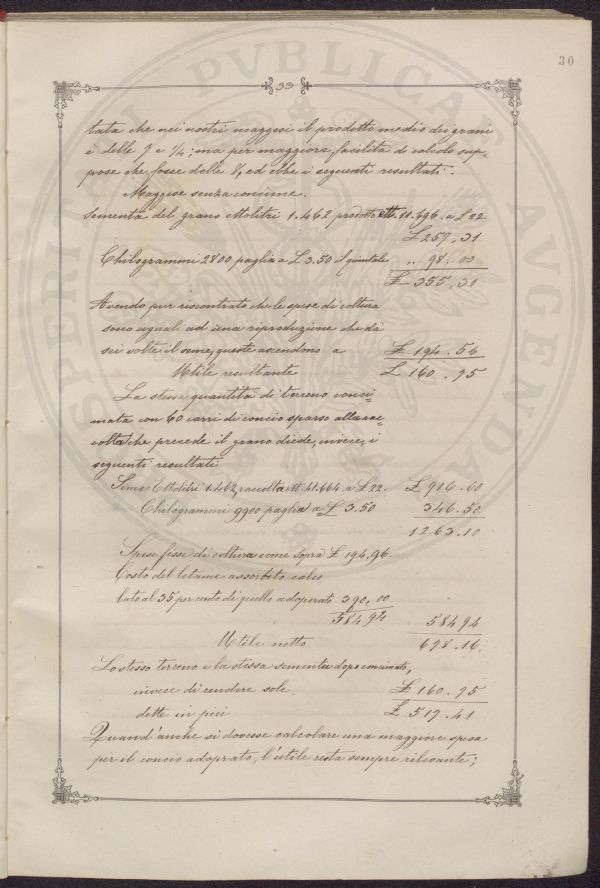 30
33
tata che nei nostri maggesi il prodotto medio dei grani
è delle 7 e 1/4; ma per maggiore facilità di calcolo sup-
pose che fosse delle 8, ed ebbe i seguenti resultati.
Maggese senza concime.
Sementa del grano ettolitri 1.462 prodotto Ett. 11.696. a £ 22.
£ 257,31
Chilogrammi 2800 paglia a £ 3.50 il quintale „ 98.00
£ 355,31
Avendo pur riscontrato che le spese di coltura
sono uguali ad una reproduzione che dà
sei volte il seme, queste ascendono a £ 194.56
Utile resultante £ 160.75
La stessa quantità di terreno conci-
mata con 60 carri di concio sparso alla rac-
colta che precede il grano diede, invece, i
seguenti resultati
Seme Ettolitri 1.462, raccolta Ett. 41.664 a £ 22. £ 916.60
Chilogrammi 9900 paglia a £ 3.50 346.50
1263.10
Spese fisse di coltura come sopra £ 194.96.
Costo del letame assorbito calco
lato al 35 per cento di quello adoperato 390,00
584 94 584 94
Utile netto 678.16.
Lo stesso terreno e la stessa sementa dopo concimato,
invece di rendere sole £ 160.75
dette in più £ 517.41
Quand'anche si dovesse calcolare una maggiore spesa
per il concio adoprato, l'utile resta sempre rilevante;
SPEDI PVBLICAE AVGENDA